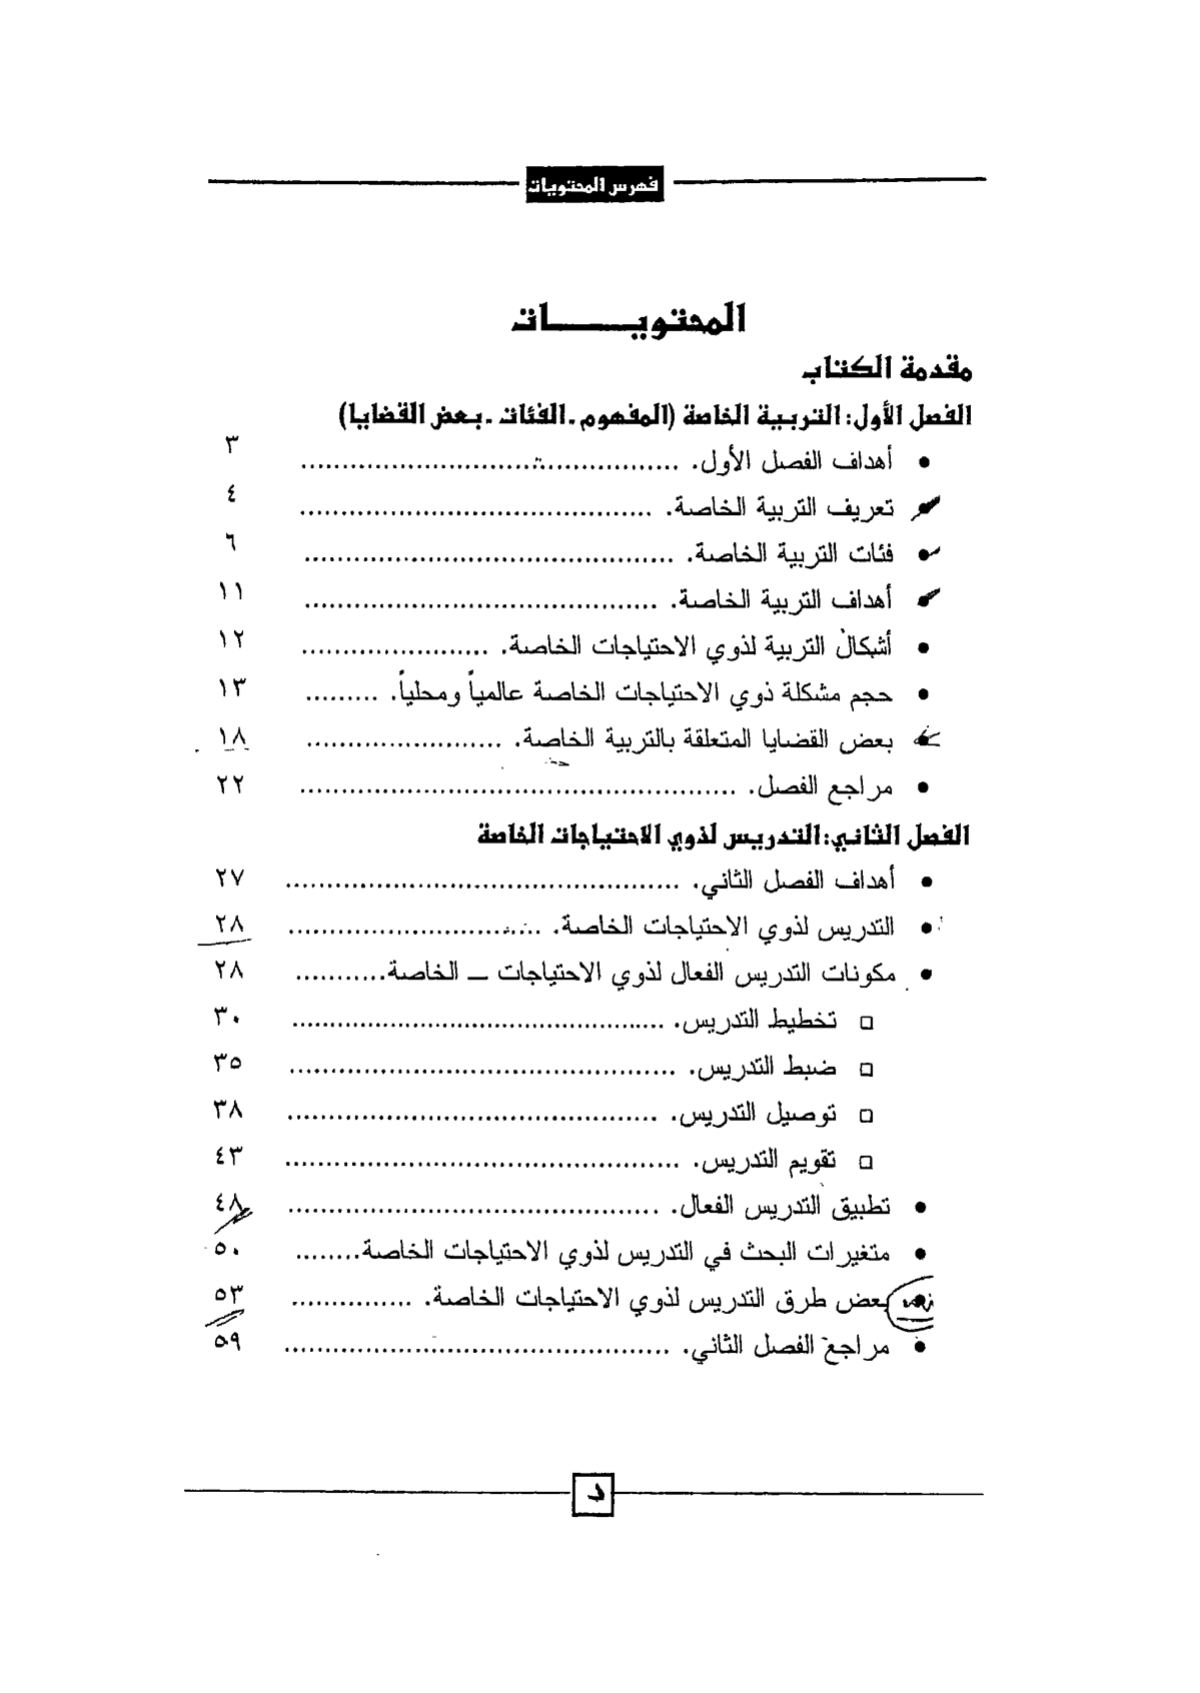 فهرس المحتويات
المحتويـــــات
مقدمة الكتاب
الفصل الأول: التربية الخاصة (المفهوم - الفئات - بعض القضايا)
• أهداف الفصل الأول. .............................................. ٣
• تعريف التربية الخاصة. .......................................... ٤
• فئات التربية الخاصة. ............................................ ٦
• أهداف التربية الخاصة. .......................................... ١١
• أشكال التربية لذوي الاحتياجات الخاصة. ....................... ١٢
• حجم مشكلة ذوي الاحتياجات الخاصة عالمياً ومحلياً. ......... ١٣
• بعض القضايا المتعلقة بالتربية الخاصة. ........................ ١٨
• مراجع الفصل. ..................................................... ٢٢
الفصل الثاني: التدريس لذوي الاحتياجات الخاصة
• أهداف الفصل الثاني. ................................................ ٢٧
• التدريس لذوي الاحتياجات الخاصة. ............................... ٢٨
• مكونات التدريس الفعال لذوي الاحتياجات ــ الخاصة........... ٢٨
□ تخطيط التدريس. .............................................. ٣٠
□ ضبط التدريس. ............................................... ٣٥
□ توصيل التدريس. ............................................. ٣٨
□ تقويم التدريس. ................................................ ٤٣
• تطبيق التدريس الفعال. ............................................. ٤٨
• متغيرات البحث في التدريس لذوي الاحتياجات الخاصة........ ٥٠
• بعض طرق التدريس لذوي الاحتياجات الخاصة. ............... ٥٣
• مراجع الفصل الثاني. ............................................... ٥٩
د